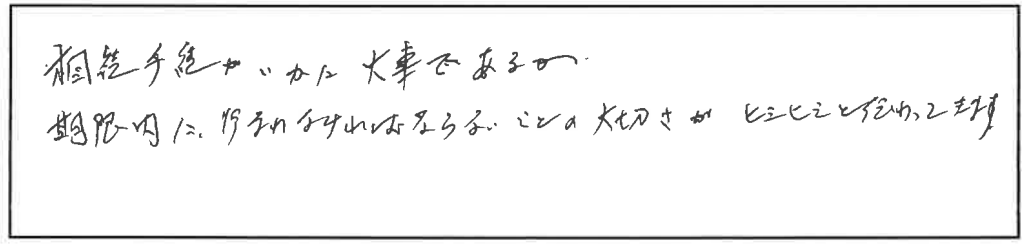 相続手続がいかに大事であるか
期限内に、行われなければならないことの大切さが ヒシヒシと伝わってきます